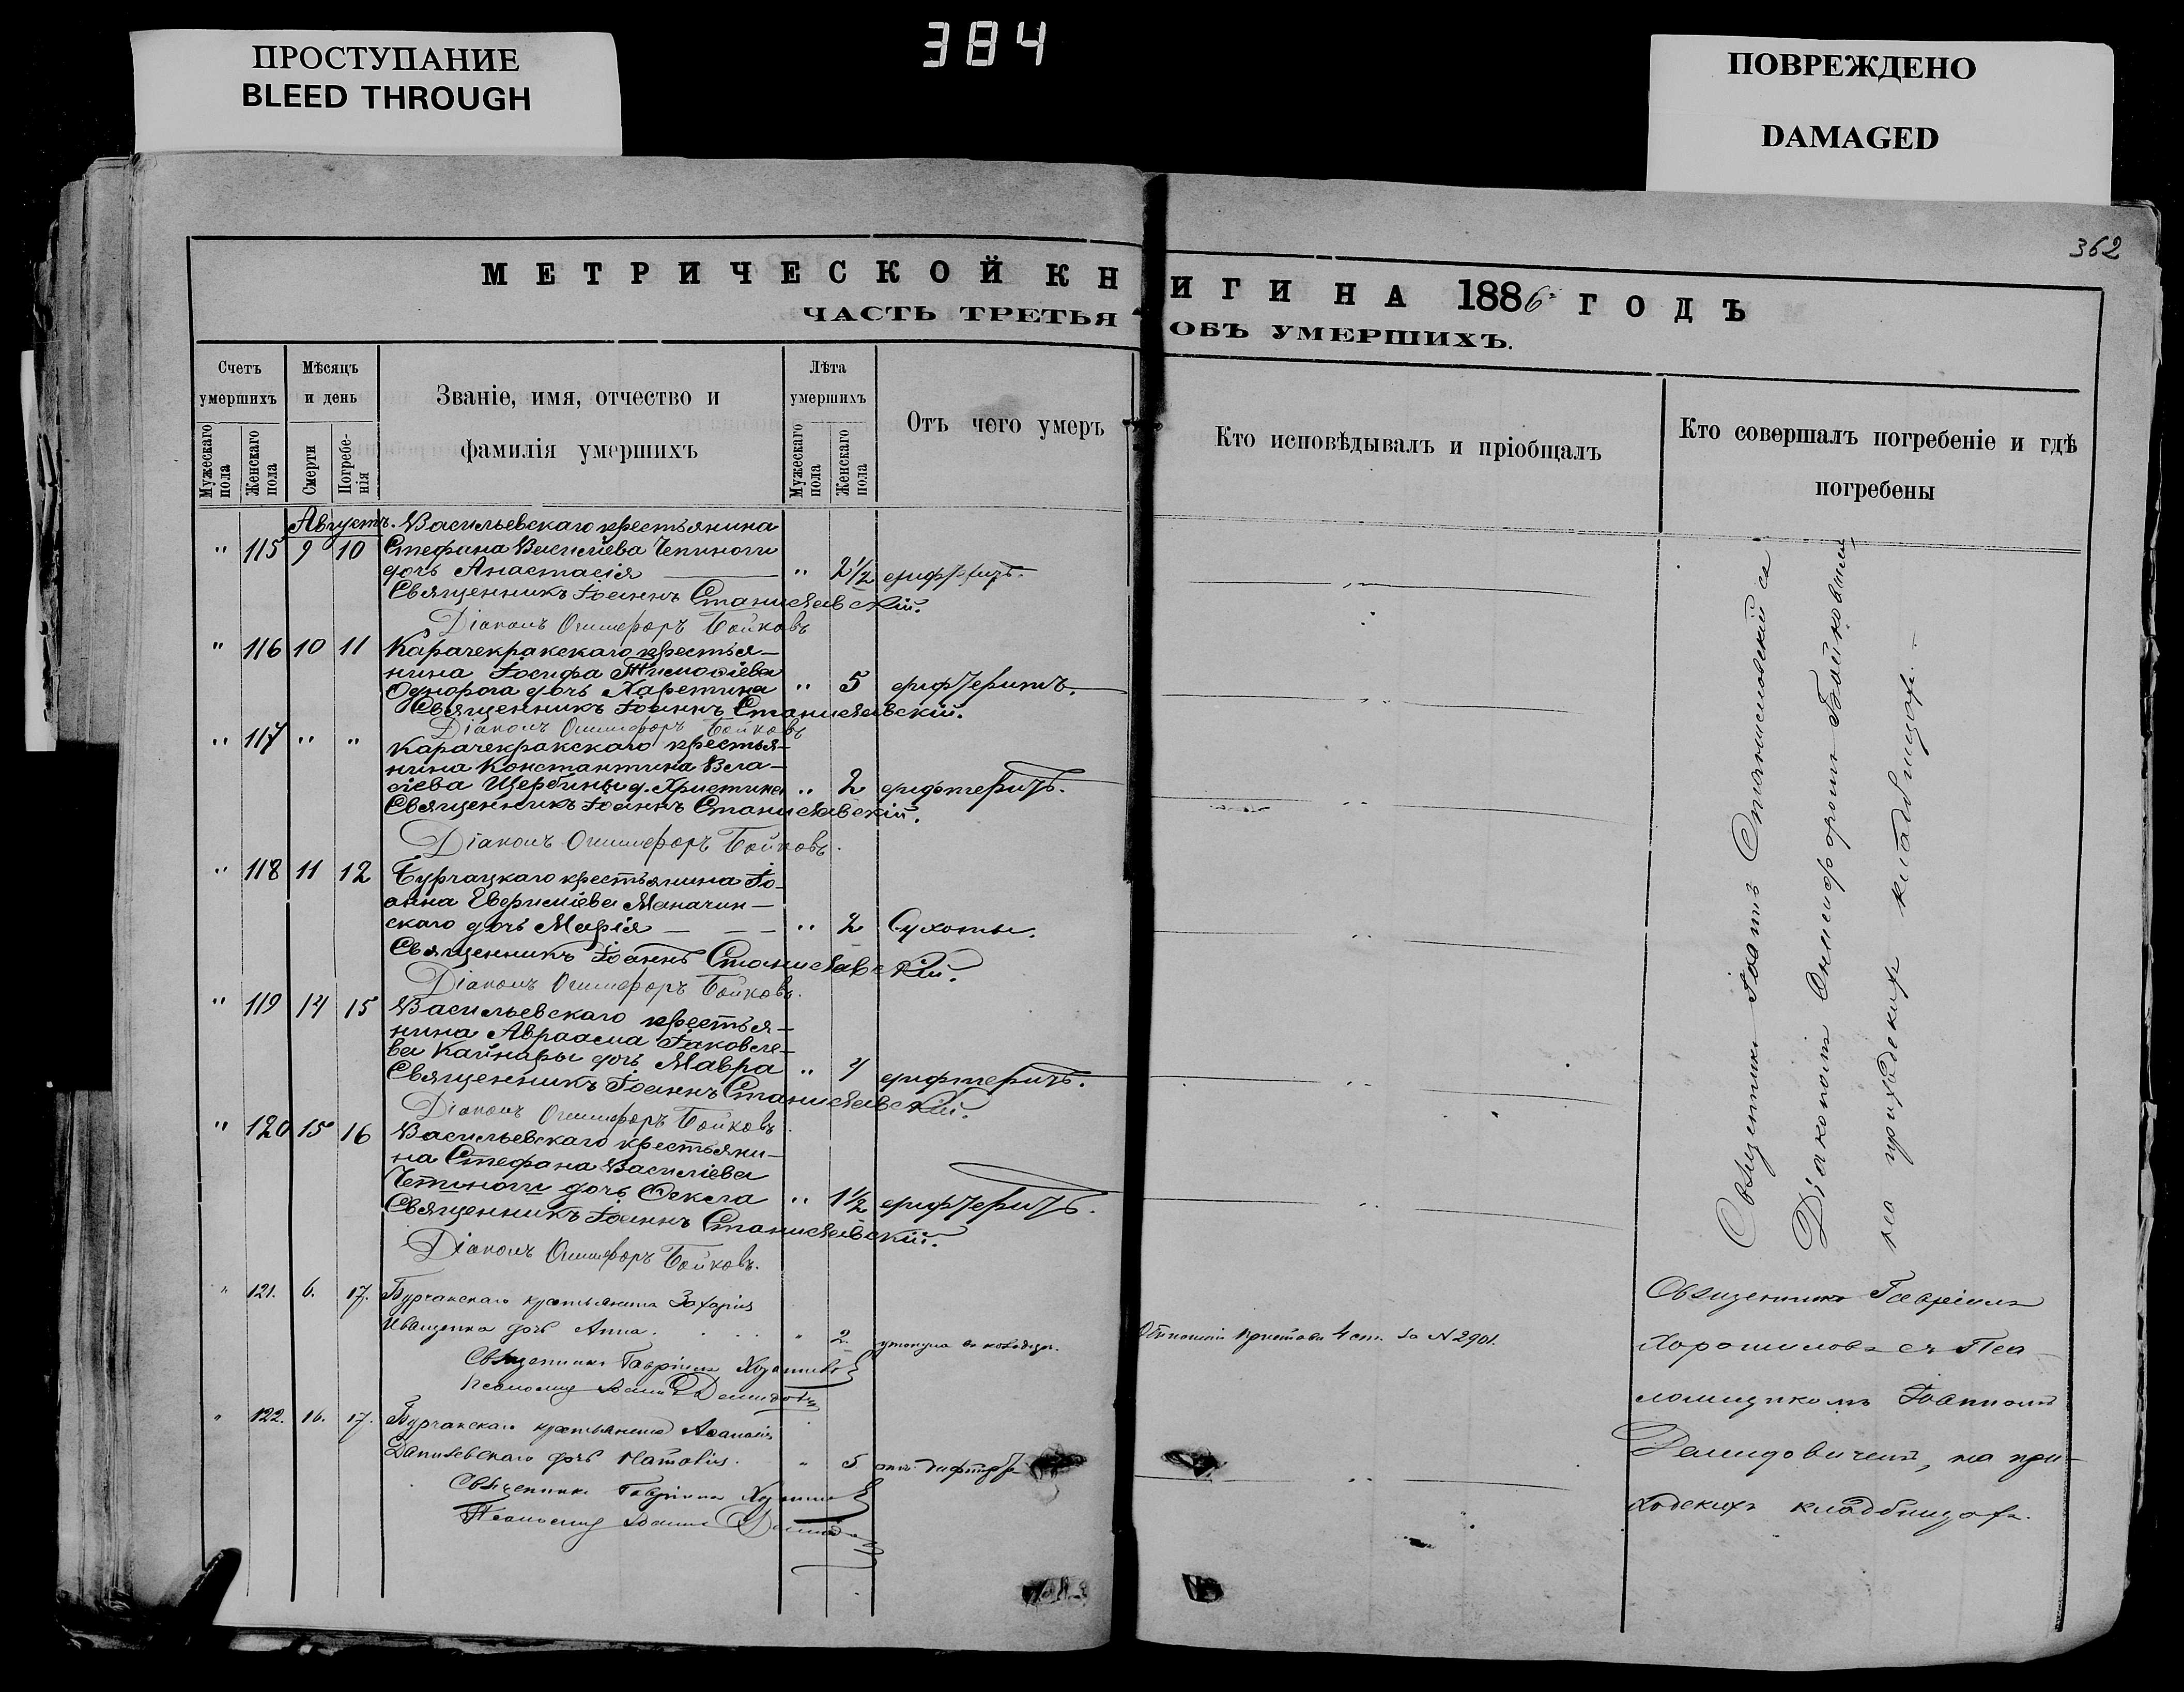 ПРОСТУПАНИЕ
BLEED THROUGH
384
ПОВРЕЖДЕНО
DAMAGED
362
МЕТРИЧЕСКОЙ КНИГИ НА 1886 ГОДЪ
ЧАСТЬ ТРЕТЬЯ ОБЪ УМЕРШИХЪ.
Счетъ умершихъ
Мужескаго пола
Женскаго пола
Мѣсяцъ и день
Смерти
Погребенія
Званіе, имя, отчество и
фамилія умершихъ
Лѣта умершихъ
Мужескаго пола
Женскаго пола
Отъ чего умеръ
Кто исповѣдывалъ и пріобщалъ
Кто совершалъ погребеніе и гдѣ
погребены
Августъ. Васильевскаго крестьянина
" 115 9 10 Стефана Василіева Чепиноги
дочь Анастасія " 2½ дифтеритъ.
Священникъ Іоаннъ Станиславскій.
Діаконъ Онисифоръ Бойковъ
" 116 10 11 Карачекракскаго крестья-
нина Іосифа Тимофіева
Однорога дочь Харетина " 5 дифтеритъ.
Священникъ Іоаннъ Станиславскій.
Діаконъ Онисифоръ Бойковъ
" 117 " " Карачекракскаго крестья-
нина Константина Вла-
сіева Щербины д. Христина " 2 дифтеритъ.
Священникъ Іоаннъ Станиславскій.
Діаконъ Онисифоръ Бойковъ.
" 118 11 12 Бурчацкаго крестьянина Іо-
анна Евфиміева Маначин-
скаго дочь Марія " 2 Сухоты.
Священникъ Іоаннъ Станиславскій.
Діаконъ Онисифоръ Бойковъ.
" 119 14 15 Васильевскаго крестья-
нина Авраама Іаковле-
ва Кайнары дочь Мавра " 4 дифтеритъ.
Священникъ Іоаннъ Станиславскій.
Діаконъ Онисифоръ Бойковъ
" 120 15 16 Васильевскаго крестьяни-
на Стефана Василіева
Чепиноги дочь Фекла " 1½ дифтеритъ.
Священникъ Іоаннъ Станиславскій.
Діаконъ Онисифоръ Бойковъ.
" 121. 6. 17. Бурчанскаго крестьянина Захарія
Иващенка дочь Анна. " 2. утонула въ колодезѣ. Отношеніе Пристава 4 ст. за N 2901.
Священникъ Гавріилъ
Псаломщ Іоаннъ
" 122. 16. 17. Бурчанскаго крестьянина Аѳанасія
Данилевскаго дочь Наталія. " 5 отъ дифтер
Священникъ Гавріилъ
Псаломщ Іоаннъ
Священникъ Іоаннъ Станиславскій съ
Діакономъ Онисифоромъ Бойковымъ
на приходскихъ кладбищахъ.
Священникъ Гавріилъ
Хорошиловъ съ Пса
ломщикомъ Іоанномъ
Демидовичемъ, на при-
ходскихъ кладбищахъ.